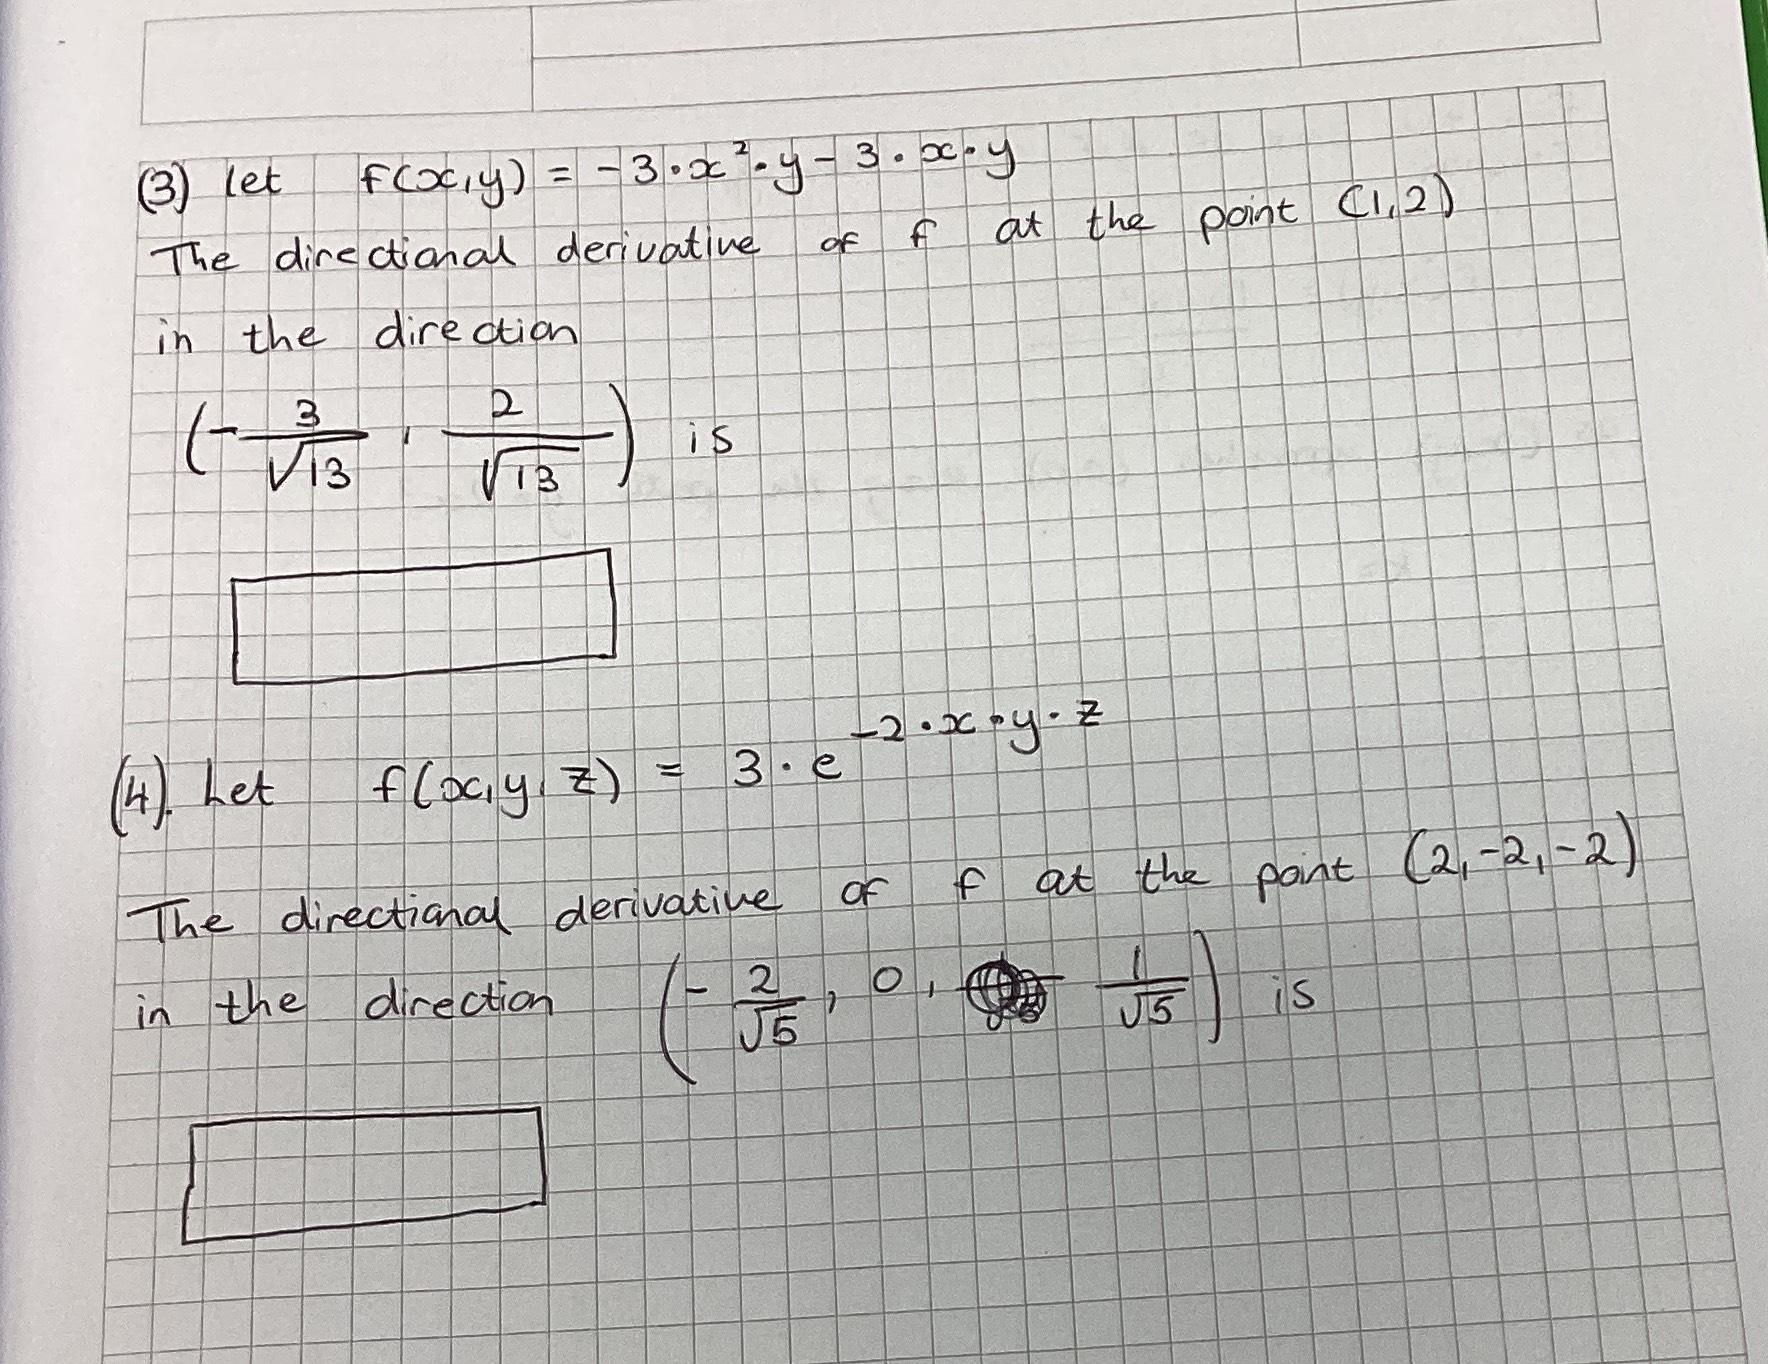 (3) let f(x,y) = -3·x²·y - 3·x·y
The directional derivative of f at the point (1,2)
in the direction
(-3/√13, 2/√13) is
(4). Let f(x,y,z) = 3·e^(-2·x·y·z)
The directional derivative of f at the point (2,-2,-2)
in the direction (-2/√5, 0, 1/√5) is